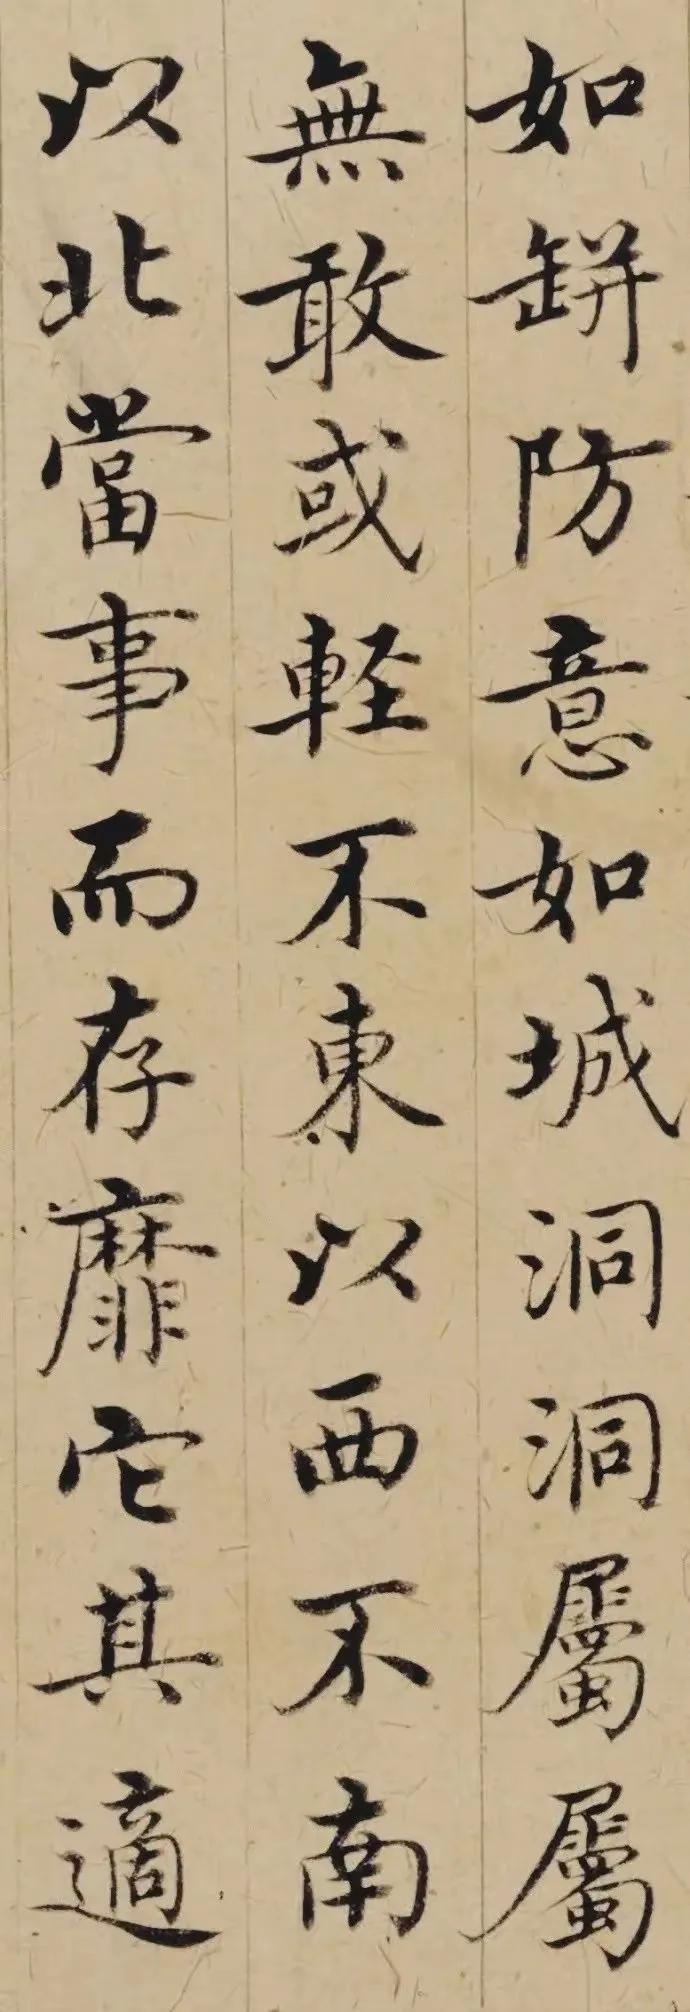 如缾防意如城洞洞屬屬
無敢或軽不東以西不南
以北當事而存靡它其適